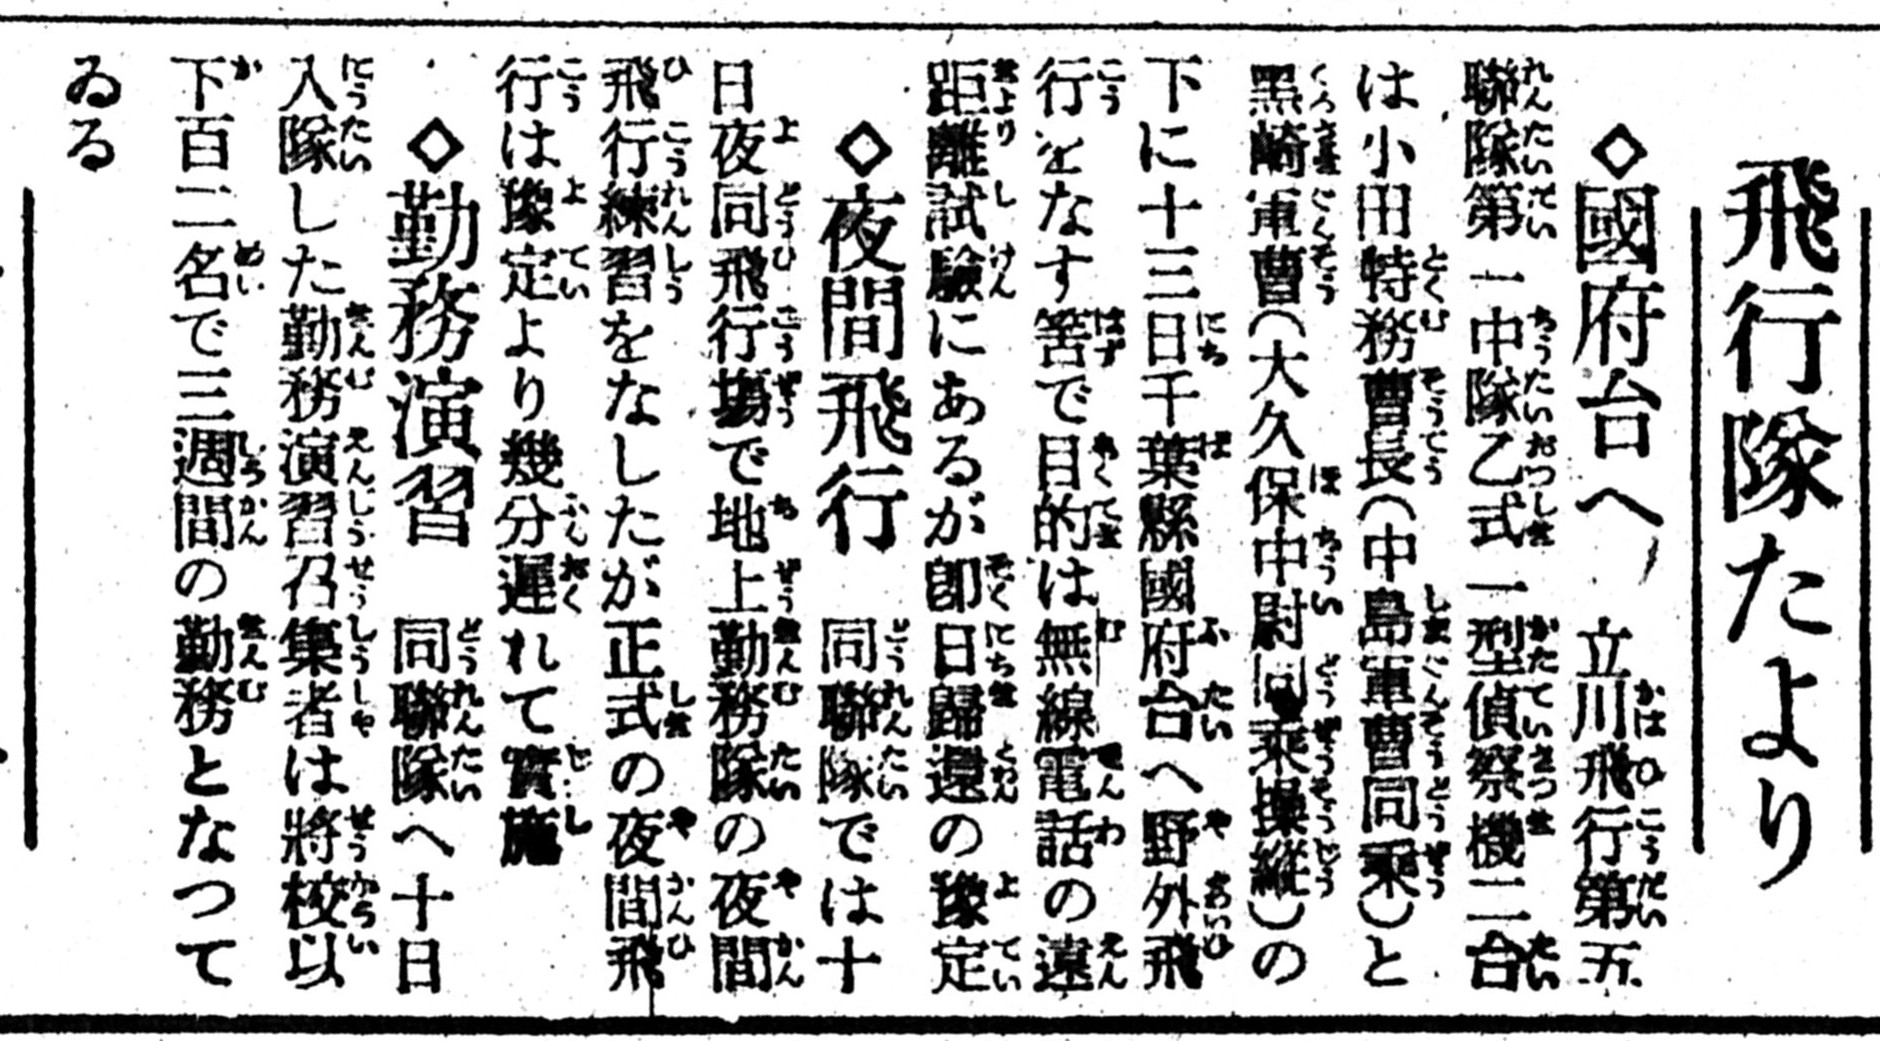 飛行隊たより
◇國府台へ　立川飛行第五
聯隊第一中隊乙式一型偵察機二台
は小田特務曹長(中島軍曹同乘)と
黑崎軍曹(大久保中尉同乘操縱)の
下に十三日千葉縣國府台へ野外飛
行をなす筈で目的は無線電話の遠
距離試驗にあるが卽日歸還の豫定
◇夜間飛行　同聯隊では十
日夜同飛行場で地上勤務隊の夜間
飛行練習をなしたが正式の夜間飛
行は豫定より幾分遲れて實施
◇勤務演習　同聯隊へ十日
入隊した勤務演習召集者は將校以
下百二名で三週間の勤務となつて
ゐる